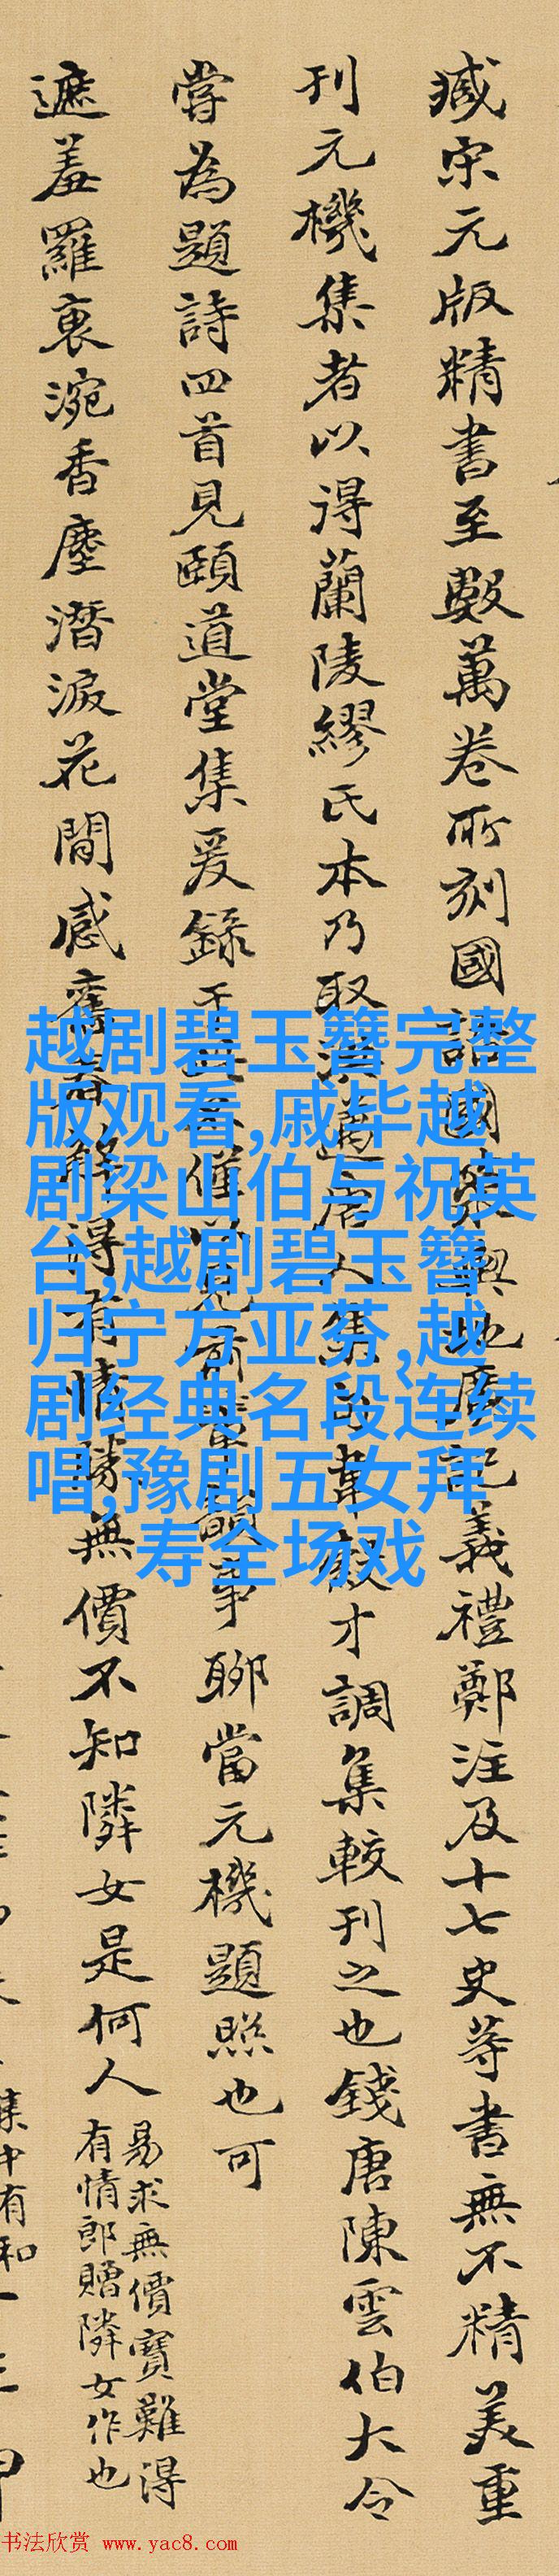 臧宋元版精書至數萬卷所刻國語國策輿地廣記義禮鄭注及十七史等書無不精美重
刊元機集者以得蘭陵繆氏本乃取洪邁唐人集韋縠才調集較刊之也錢唐陳雲伯大令
嘗為題詩四首見頤道堂集爰錄于後以見前輩韻事聊當元機題照也可
遮羞羅裹涴香塵潛淚花間感舊春解得有情勝無價不知隣女是何人
易求無價寶難得
有情郎贈隣女作也
集中有和
越剧碧玉簪完整
版观看,戚毕越
剧梁山伯与祝英
台,越剧碧玉簪
归宁方亚芬,越
剧经典名段连续
唱,豫剧五女拜
寿全场戏
书法欣赏 www.yac8.com